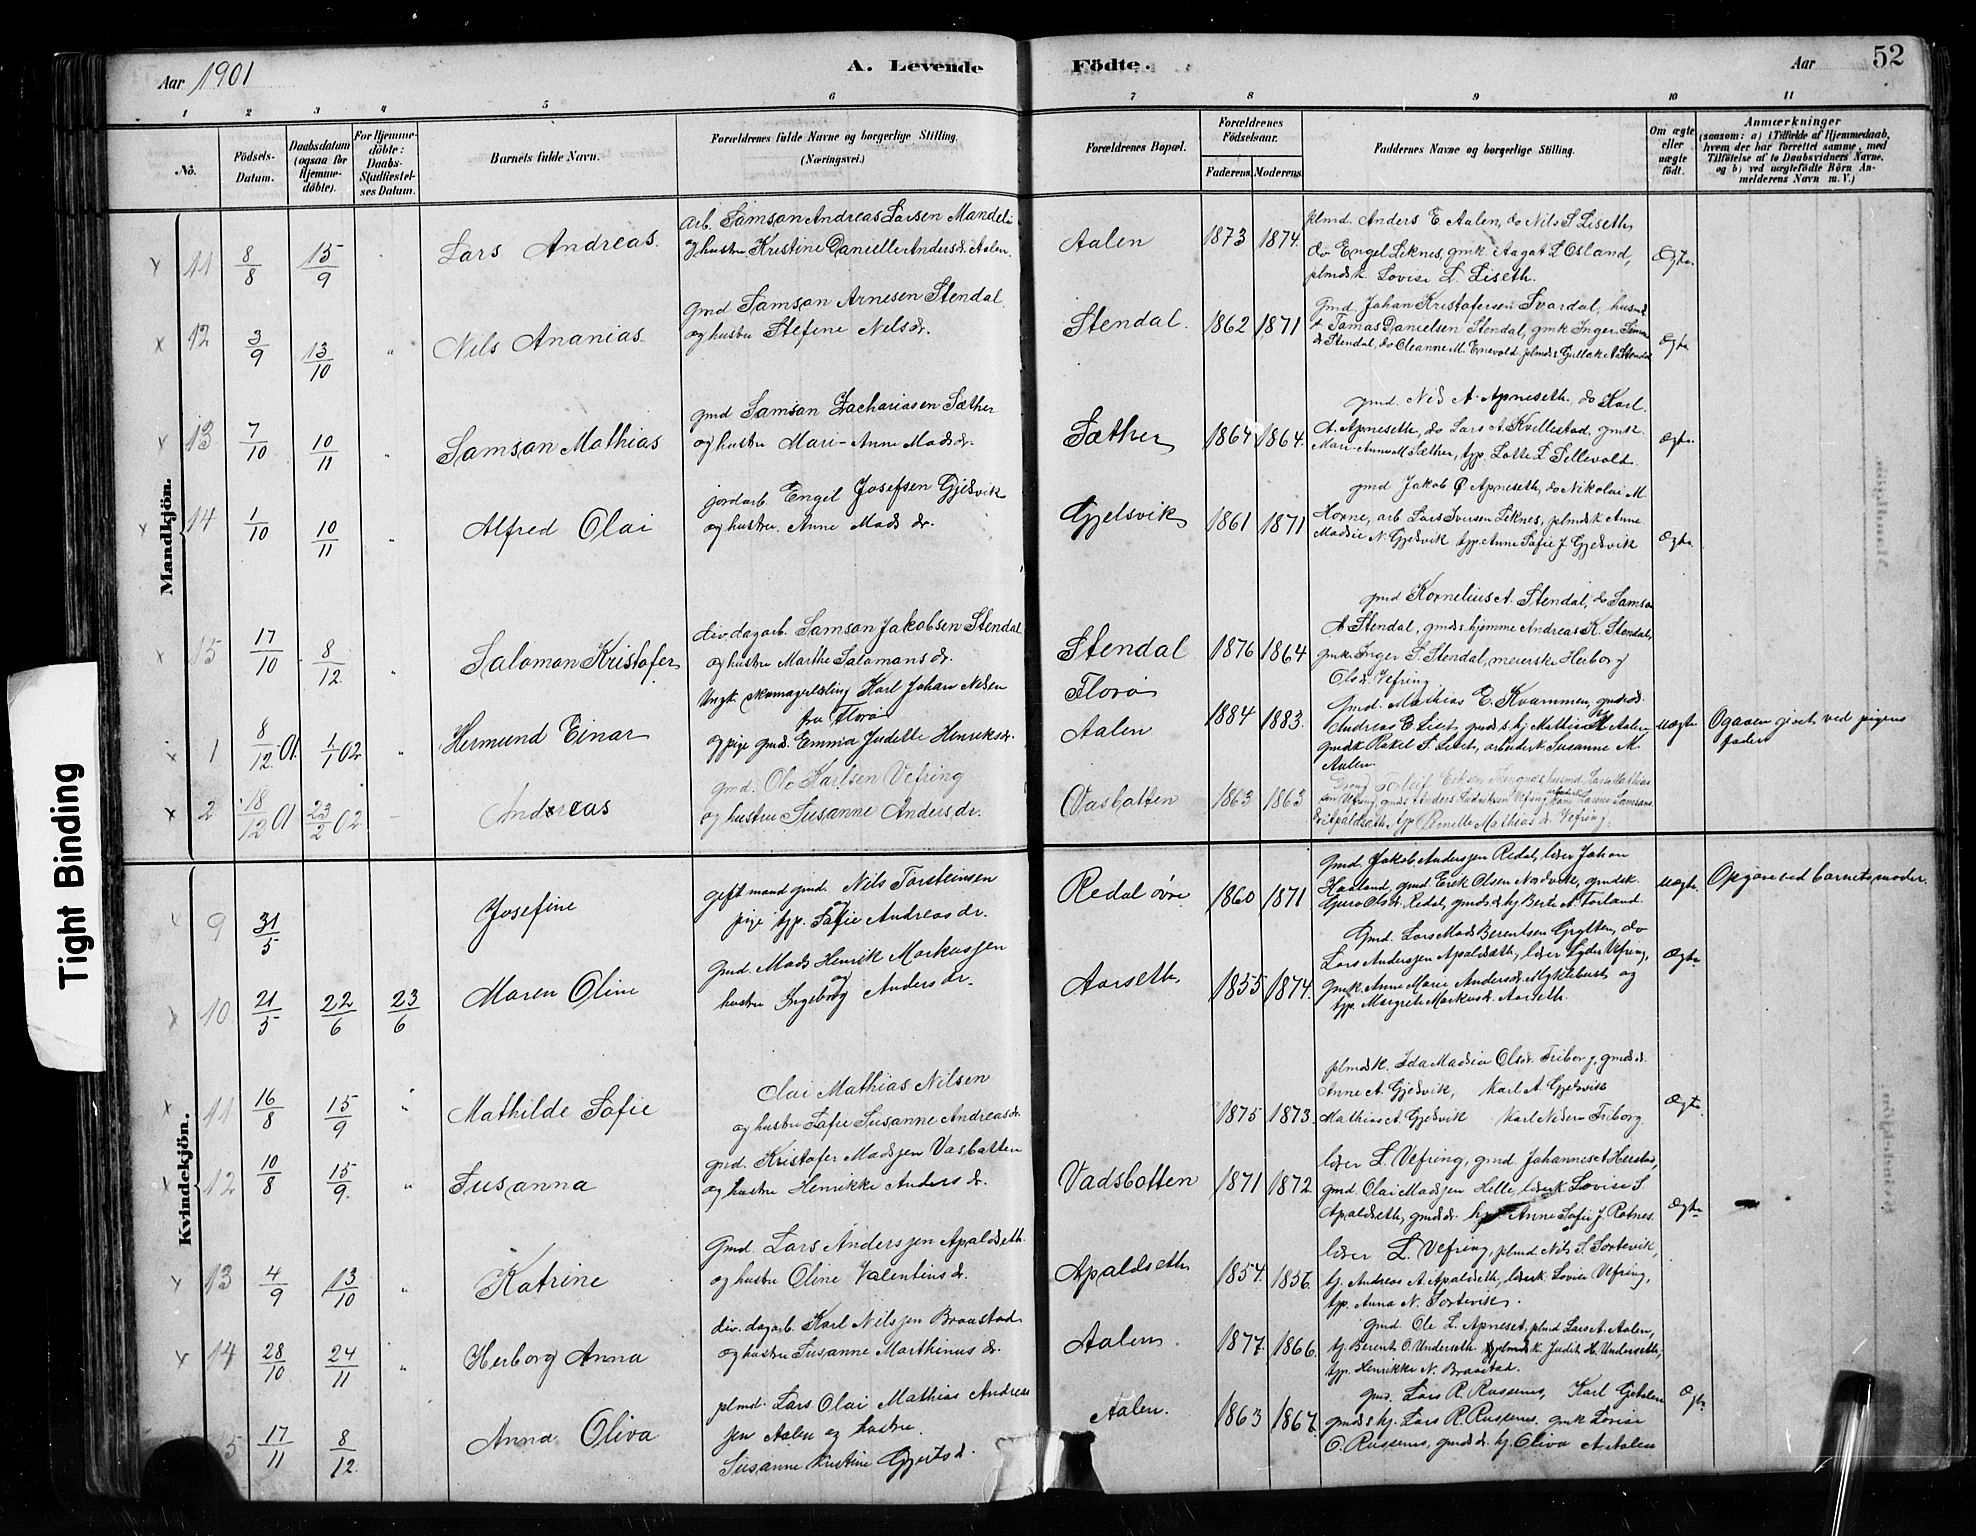 Aar 1901
A. Levende Födte.
Aar
52
1 2 3 4 5 6 7 8 9 10 11
No.
Födsels-Datum.
Daabsdatum (ogsaa for Hjemme-döbte).
For Hjemme-döbte: Daabs-Stadfæstel-ses Datum.
Barnets fulde Navn.
Forældrenes fulde Navne og borgerlige Stilling. (Næringsvei.)
Forældrenes Bopæl.
Forældrenes Födselsaar.
Faderens. Moderens.
Faddernes Navne og borgerlige Stilling.
Om ægte eller uægte födt.
Anmærkninger
(saasom: a) i Tilfælde af Hjemmedaab, hvem der har forrettet samme, med Tilföielse af to Daabsvidners Navne, og b) ved uægtefödte Börn An-melderens Navn m. V.)
Mandkjön.
11 8/8 15/9 Lars Andreas.
arb. Samson Andreas Larsen
og hustru Kristine Danielle Andersdr. Aalen.
Aalen 1873 1874.
plmd. Anders E. Aalen, do Nils S. Liseth,
do Engel Leknes, gmk. Aagot L. Osland,
plmdsk. Lovise L. Liseth.
Ægte.
12 3/9 13/10 " Nils Ananias
gmd Samson Arnesen Stendal
og hustru Stefine Nilsdr.
Stendal. 1862 1871
Gmd. Johan Kristofersen Svardal, husmd.
Tomas Danielsen Stendal, gmk Inger
Stendal, do Oleanne M.
Ægte
13 7/10 10/11 " Samson Mathias
gmd Samson Zachariasen Sæther
og hustru Mari-Anne Madsdr.
Sæther 1864 1864.
gmd. Nils A. Apneseth, do Karl
A. Apneseth, do Lars A. Kvellestad, gmk.
Mari-Anne M. Sæther, typ. Lotte L. Sellevold.
Ægte.
14 1/10 10/11 " Alfred Olai
jordarb. Engel Josefsen Gjelsvik
og hustru Anne Madsdr.
Gjelsvik 1861 1871
gmd Jakob Ø. Apneseth, do Nikolai M.
Horne, arb. Lars Iversen Leknes, plmdsk Anne
Madsie N. Gjelsvik typ. Anne Sofie J. Gjelsvik
Ægte.
15 17/10 8/12. " Salomon Kristofer
div. dagarb. Samson Jakobsen Stendal
og hustru Marthe Salamonsdr.
Stendal 1876 1864
gmd Kornelius A. Stendal, do Samson
A. Stendal, gmds. hjemme Andreas K. Stendal,
gmk. Inger S. Stendal, meierske Herborg
Olsdr. Vefring.
1 8/12 01. 1/1 02 " Hermund Einar
Ungk. skomagerlærling Karl Johan Nilsen
fra Florø
og pige gmd. Emma Judette Henriksdr.
Florø
Aalen
1884 1883.
Gmd. Mathias E. Kvammen, gmds.
Andreas E. Liset, gmds. hj. Mathias M. Aalen
gmdk Rakel S. Liset, arbeidersk Susanne M.
Aalen.
Uægte. Opgaven givet ved pigens
fader
2 18/12 01 23/2 02 – Andreas
gmd. Ole Karlsen Vefring
og hustru Susanne Andersdr.
Vasbotten 1863 1863
Kvindekjön.
9 31/5 Josefine
gift mand gmd. Nils Torsteinsen
og
pige typ. Sofie Andreasdr.
Redal øvre 1860 1871
Gmd. Jakob Andersjen Redal, lærer Johan
Haaland, gmd. Erik Olsen Nordvik, gmdsk.
Guro Olsdr. Redal, gmds. dr. hj. Berte A. Forland
Uægte. Opgave ved barnets moder.
10 21/5 22/6 23/6 Maren Oline
Gmd. Mads Henrik Markusjen
og
hustru Ingeborg Andersdr.
Aarseth 1855 1874.
Gmd. Lars Mads Berentsen Grytten, do
Lars Andersjen Apaldseth, lærer Lyder Vefring,
gmk. Anne Marie Andersdr. Myklebust og
typ. Margrete Markusdr. Aarseth.
Ægte.
11 16/8 15/9 " Mathilde Sofie
Olai Mathias Nilsen
og hustru Sofie Susanne Andreasdr.
1875 1873.
plmdsk. Ida Madsine Olsdr. Friborg, gmds. dr.
Anne A. Gjelsvik, Karl A. Gjelsvik
Mathias A. Gjelsvik Karl Nilsen Friborg.
Ægte.
12 10/8 15/9. " Susanna
gmd. Kristofer Madsjen Vasbotten
og hustru Henrikke Andersdr.
Vadsbotten 1871 1872.
lærer L. Vefring, gmd. Johannes A. Herstad,
gmd. Olai Madsjen Helle, lærersk. Lovise S.
Apaldseth, gmds. dr. hj. Anne Sofie J. Rotnes.
Ægte.
13 4/9 13/10 " Katrine
Gmd. Lars Andersjen Apaldseth
og hustru Oline Valentinsdr.
Apaldseth 1854. 1856.
lærer L. Vefring, plmd. Nils S. Sortevik,
hj. Andreas A. Apaldseth, lærersk. Lovise Vefring,
typ. Anna N. Sortevik.
14 28/10. 24/11 " Herborg Anna
div. dagarb. Karl Nilsjen Braastad
og hustru Susanne Marthinusdr.
Aalen. 1877. 1866.
gmd. Ole L. Apneset, plmd Lars A. Aalen,
hj. Berent O. Underseth, plmdsk. Judit H. Underseth,
typ. Henrikke N. Braastad.
5 17/11 8/12. Anna Oliva
plmd. Lars Olai Mathias Andreas
jen Aalen og hustru.
Susanne Kristine Gjertsd.
Aalen. 1863 1867.
gmd. Lars R. Russenes, Karl
gmds. hj. Lars R. Russenes, gmk Lovise
O. Russenes, gmds. dr. hj. Oliva A. Aalen
Ægte
Tight Binding